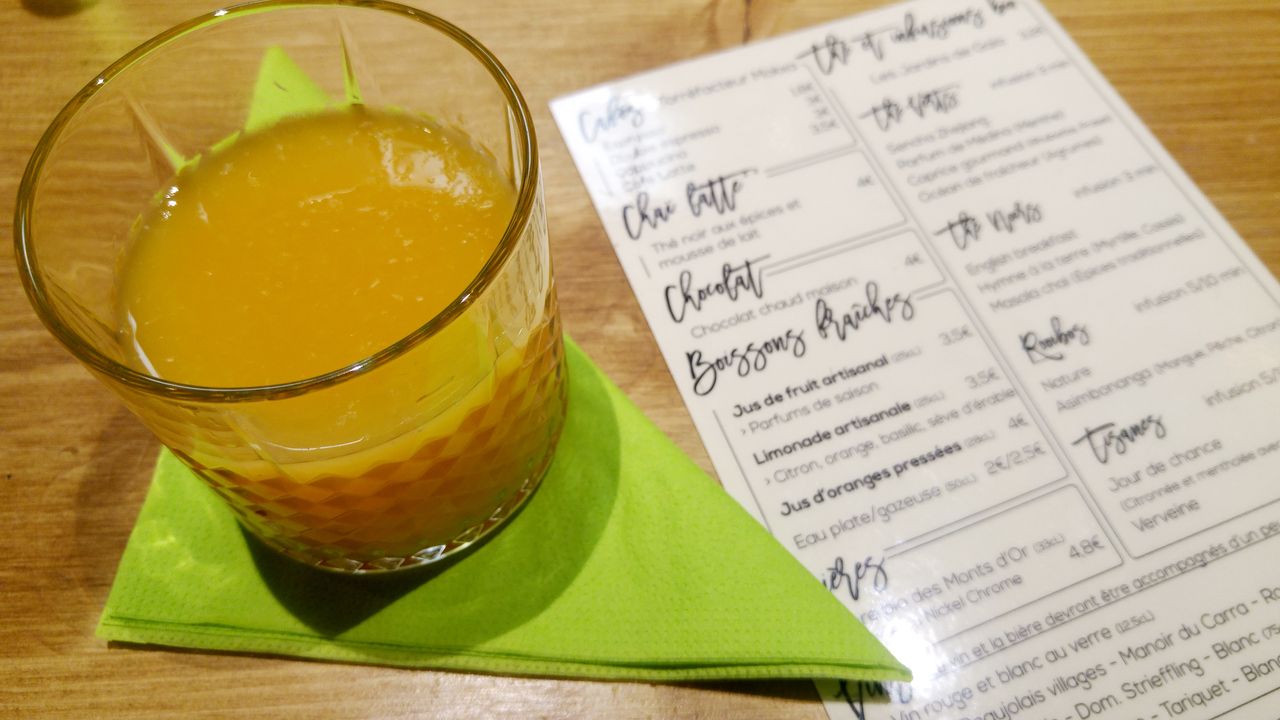 Cafés
Torréfacteur Mokxa
Espresso
3,5€
Chaï latte
4€
Thé noir aux épices et
mousse de lait
Chocolat
4€
Chocolat chaud maison
Boissons fraîches
Jus de fruit artisanal (25cL) 3,5€
> Parfums de saison
Limonade artisanale (25cL) 3,5€
> Citron, orange, basilic, sève d'érable
Jus d'oranges pressées (25cL) 4€
Eau plate/gazeuse (50cL) 2€/2,5€
ières
des Monts d'Or (33cL) 4,8€
Nickel Chrome
Thé et infusions bio
Les Jardins de Gaïa
Thé Verts
infusion 3 min
Sencha Zhejiang
Parfum de Médina (Menthe)
Caprice gourmand
Océan de fraîcheur (Agrumes)
Thé Noirs
infusion 3 min
English breakfast
Hymne à la terre (Myrtille, Cassis)
Masala chaï (Épices traditionnelles)
Rooibos
infusion 5/10 min
Nature
Asimbonanga (Mangue, Pêche, Citron
Tisanes
infusion 5/
Jour de chance
(Citronnée et mentholée avec
Verveine
vin et la bière devront être accompagnés d'un pe
Vins
Vin rouge et blanc au verre (12,5cL)
Beaujolais villages - Manoir du Carra - Ro
- Dom. Strieffling - Blanc (75c
- Tariquet - Blan